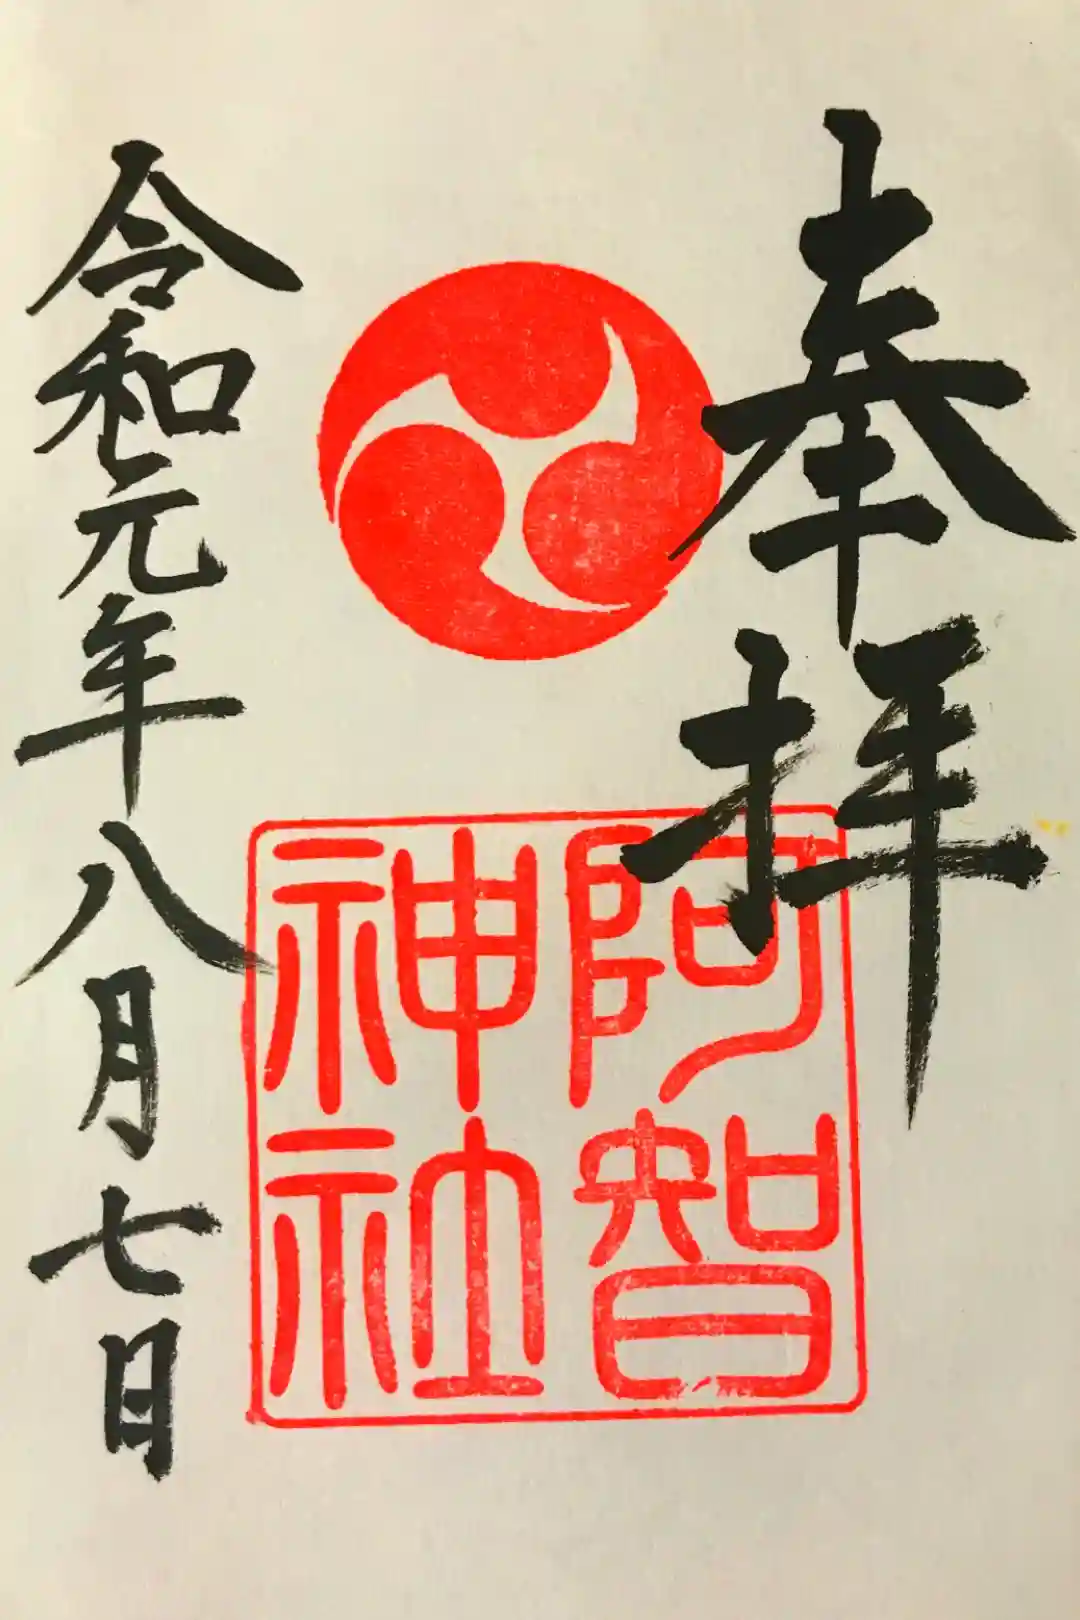 奉拝
阿智
神社
令和元年八月七日